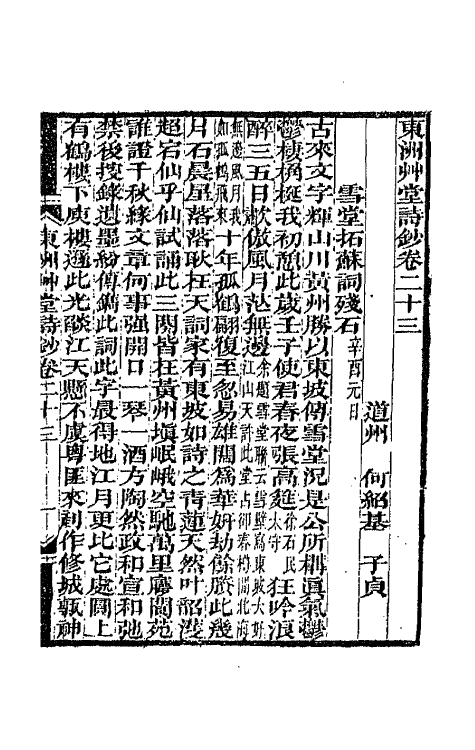 東洲艸堂詩鈔卷二十三
道州 何紹基 子貞
雪堂拓蘇詞殘石辛酉元日
古來文字輝山川黃州勝以東坡傳雪堂況是公所構眞氣鬱
鬱棲榱梴我初憩此歲壬子使君春夜張高筵徐石民太守狂吟浪
醉三五日歗傲風月茫無邊余題雪堂聯云當壁爲東坡大好江山天許此堂占卻春樽開北海
無邊風月我如孤鶴飛來十年孤鶴翩復至忽易雄闊爲華妍劫餘賸此幾
片石晨星落落耿在天詞家有東坡如詩之靑蓮天然叶韶濩
超宕仙乎仙試誦此三闋皆在黃州塡岷峨空馳萬里夢閬苑
誰證千秋緣文章何事強開口一琴一酒方陶然政和宣和弛
禁後搜錄遺墨紛傳鐫此詞此字最得地江月更比它處圓上
有鶴樓下庾樓遜此光燄江天懸不虞粵匪來剷作修城甎神
東洲艸堂詩鈔卷二十三
一